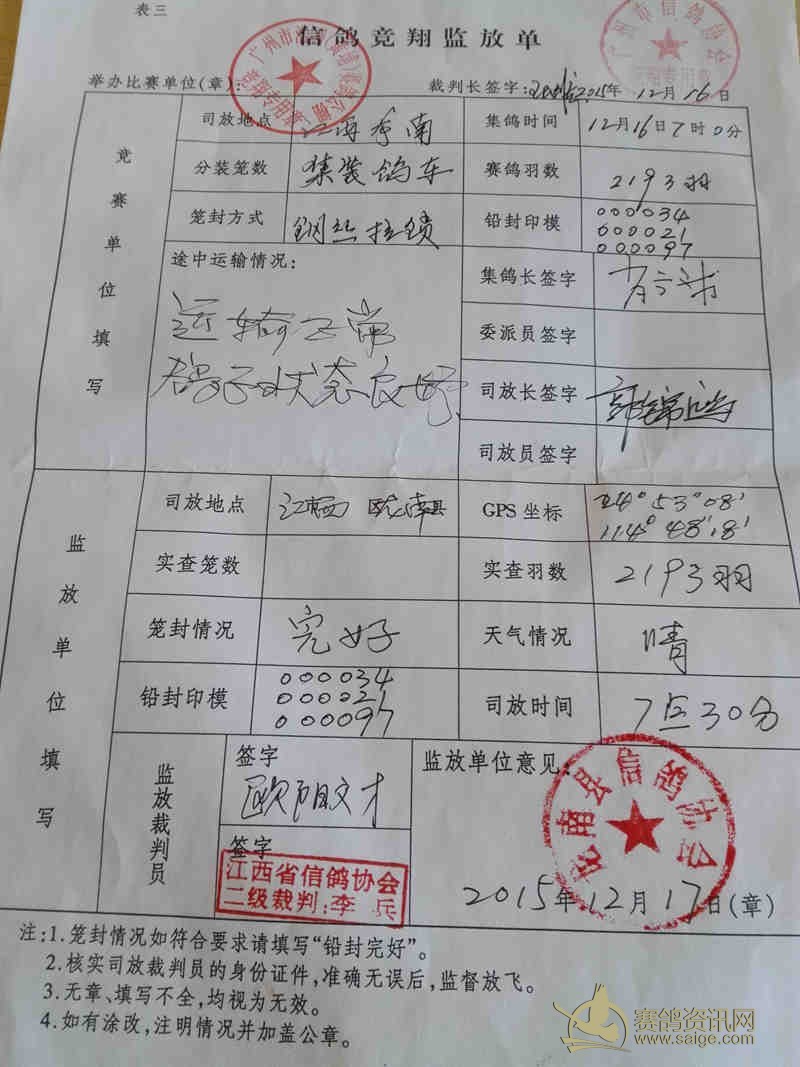 表三
信鸽竞翔监放单
举办比赛单位(章):
裁判长签字: 2015年 12月 16日
竞赛单位填写
司放地点
集鸽时间 12月16日7时0分
分装笼数 集装鸽车
赛鸽羽数 2193羽
笼封方式 钢丝拉锁
铅封印模 000034
000021
000097
途中运输情况:
运输正常
鸽子状态良好
集鸽长签字
委派员签字
司放长签字
司放员签字
监放单位填写
司放地点 江西 龙南县
GPS坐标 24°53'08'
114°48'18'
实查笼数
实查羽数 2193羽
笼封情况 完好
天气情况 晴
铅封印模 000034
000021
000097
司放时间 7点30分
监放裁判员
签字
欧阳文才
签字
江西省信鸽协会
二级裁判:李兵
监放单位意见:
龙南县信鸽协会
2015年12月17日(章)
注:1.笼封情况如符合要求请填写“铅封完好”。
2.核实司放裁判员的身份证件,准确无误后,监督放飞。
3.无章、填写不全,均视为无效。
4.如有涂改,注明情况并加盖公章。
广州市信鸽协会
赛鸽资讯网
www.saige.com